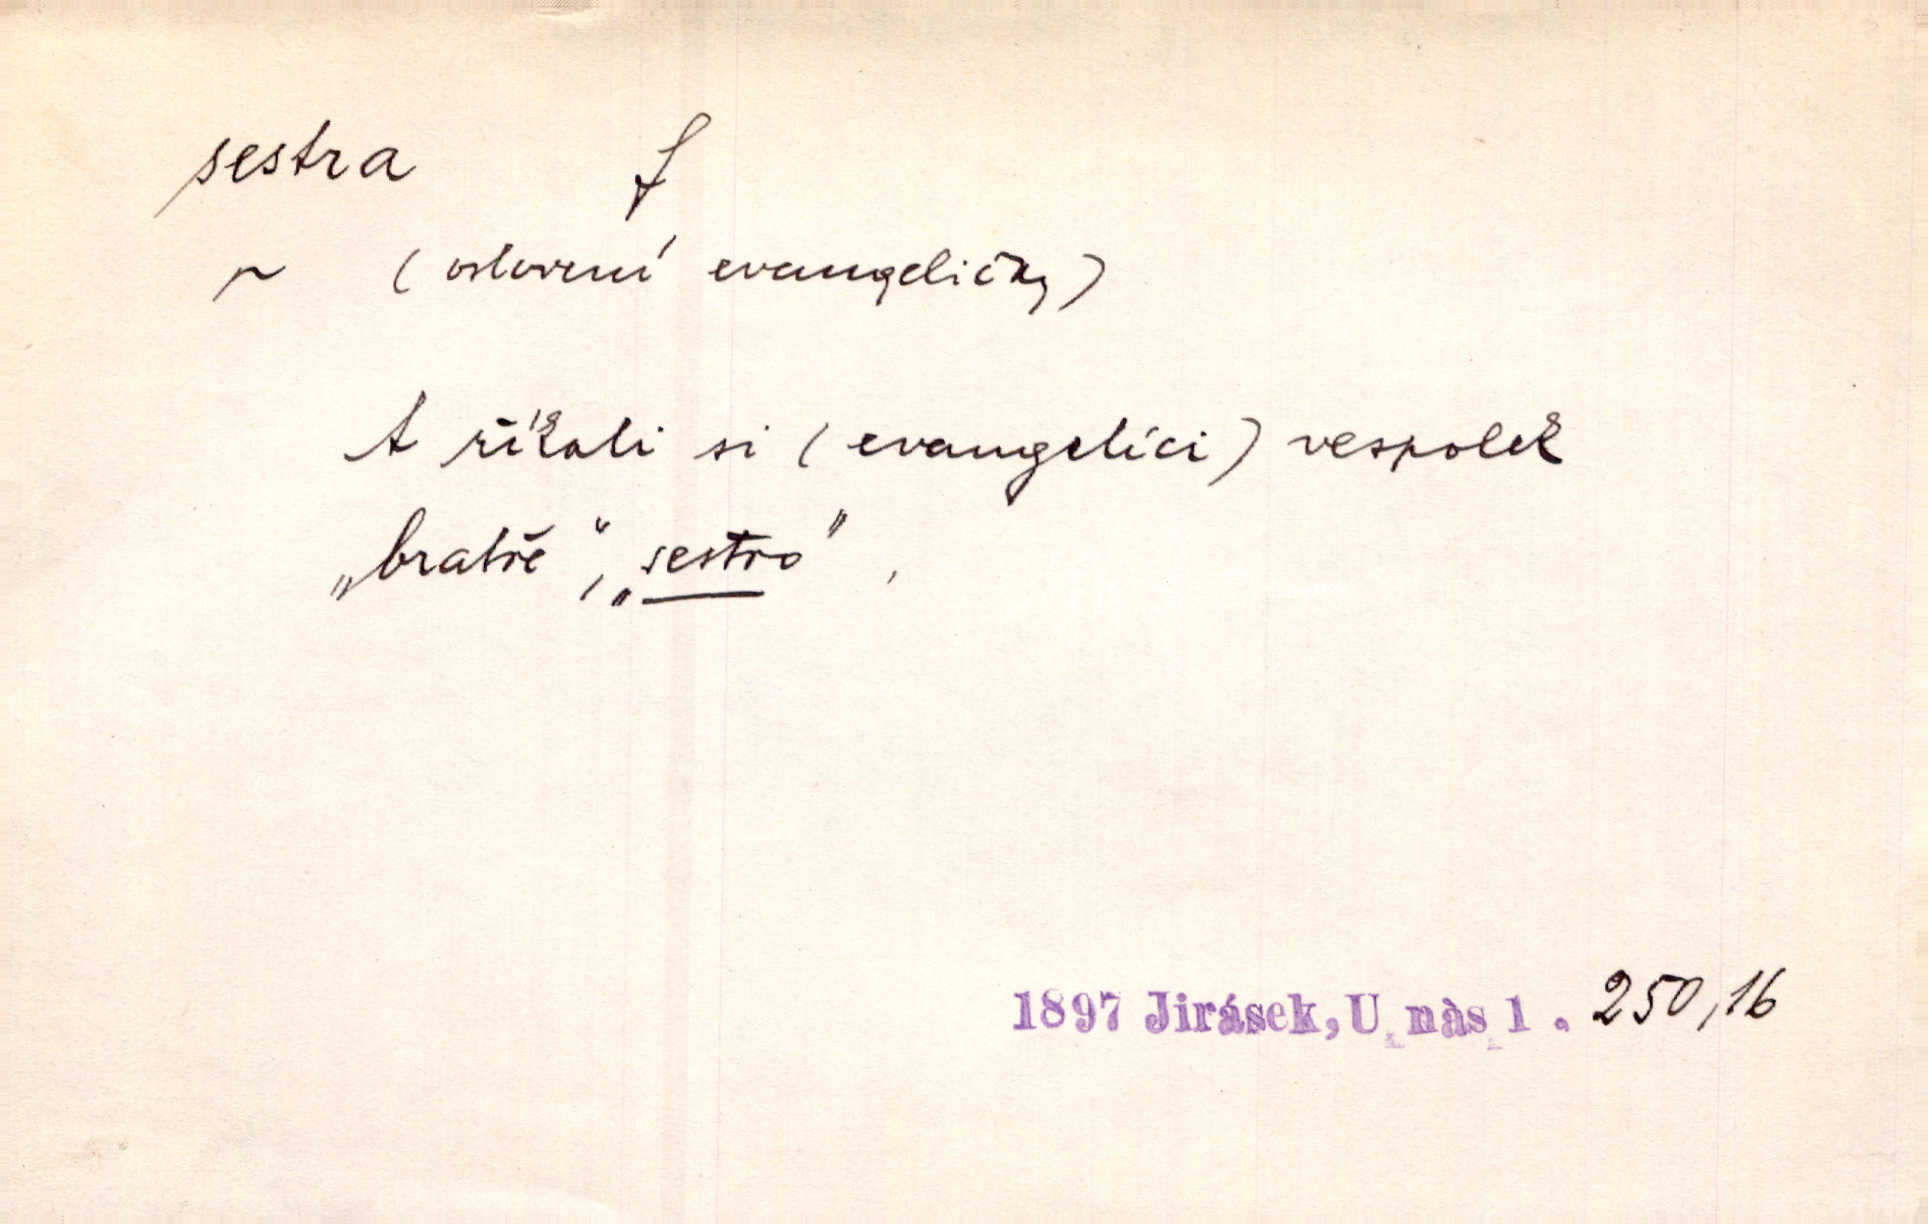 sestra f
~ (oslovení evangeličky)
A říkali si (evangelíci) vespolek
„bratře“, „sestro“,
1897 Jirásek, U nàs 1 . 250,16